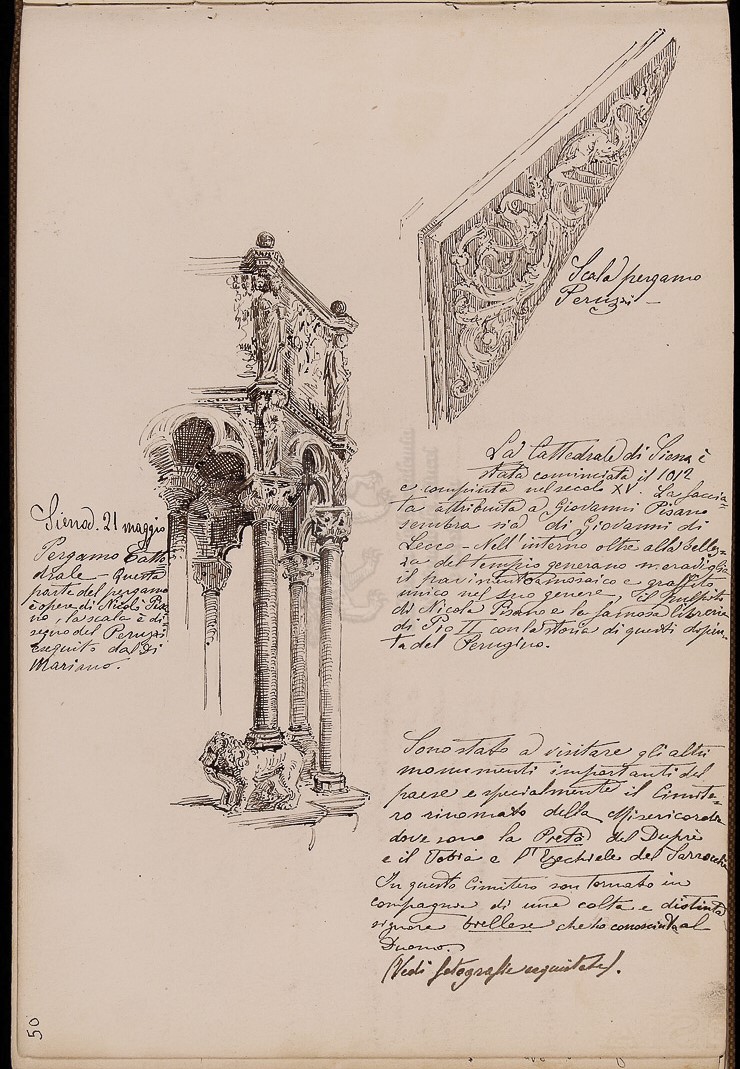 Scala pergamo
Peruzzi —
La Cattedrale di Siena è
stata cominciata il 1012
e compiuta nel secolo XV. La faccia-
ta attribuita a Giovanni Pisano
sembra sia di Giovanni di
Lecco — Nell'interno oltre alla bellez-
za del tempio generano meraviglia
il pavimento a mosaico e graffito
unico nel suo genere, il pulpito
di Nicola Pisano e la famosa libreria
di Pio II con la storia di questi dipin-
ta del Perugino.
Siena. 21 maggio
Pergamo Catte
drale — Questa
parte del pergamo
è opera di Nicolò Pisa
no, la scala è di-
segno del Peruzzi
eseguito dal Di
Mariano.
Sono stato a visitare gli altri
monumenti importanti del
paese e specialmente il Cimite-
ro rinomato della Misericordia
dove sono la Pietà del Duprè
e il Tobia e l'Ezechiele del Sarrocchi
In questo Cimitero son tornato in
compagnia di una colta e distinta
signora biellese che ho conosciuta al
Duomo.
(Vedi fotografie acquistate).
50